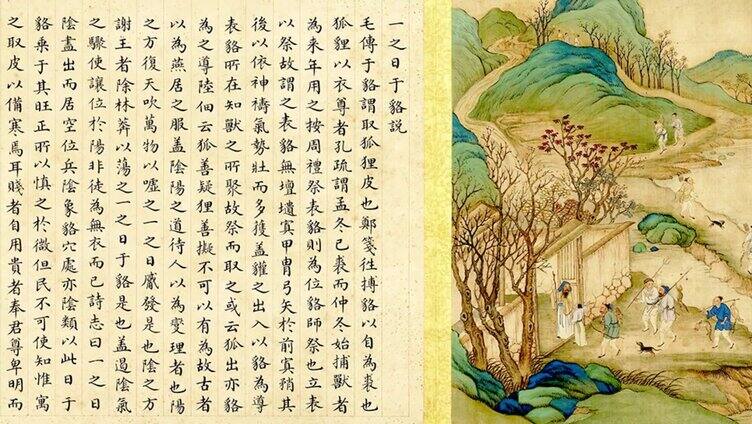 一之日于貉說
毛傳于貉謂取狐狸皮也鄭箋往搏貉以自為裘也
狐貍以衣尊者孔疏謂孟冬已裘而仲冬始捕獸者
為來年用之按周禮祭表貉則為位貉師祭也立表
以祭故謂之表貉無壇壝寘甲冑弓矢於前寘矟其
後以依神禱氣勢壯而多獲蓋貛之出入以貉為導
表貉所在知獸之所聚故祭而取之或云狐出亦貉
為之導陸佃云狐善疑狸善擬不可以有為故古者
以為燕居之服蓋陰陽之道待人以為變理者也陽
之方復天吹萬物以噓之一之日觱發是也陰之方
謝王者除林莽以蕩之一之日于貉是也蓋過陰氣
之驟使讓位於陽非徒為無衣而已詩志曰一之日
陰盡出而居空位兵陰象貉穴處亦陰類以此日于
貉乘于其旺正所以慎之於微但民不可使知惟寓
之取皮以備寒焉耳賤者自用貴者奉君尊卑明而